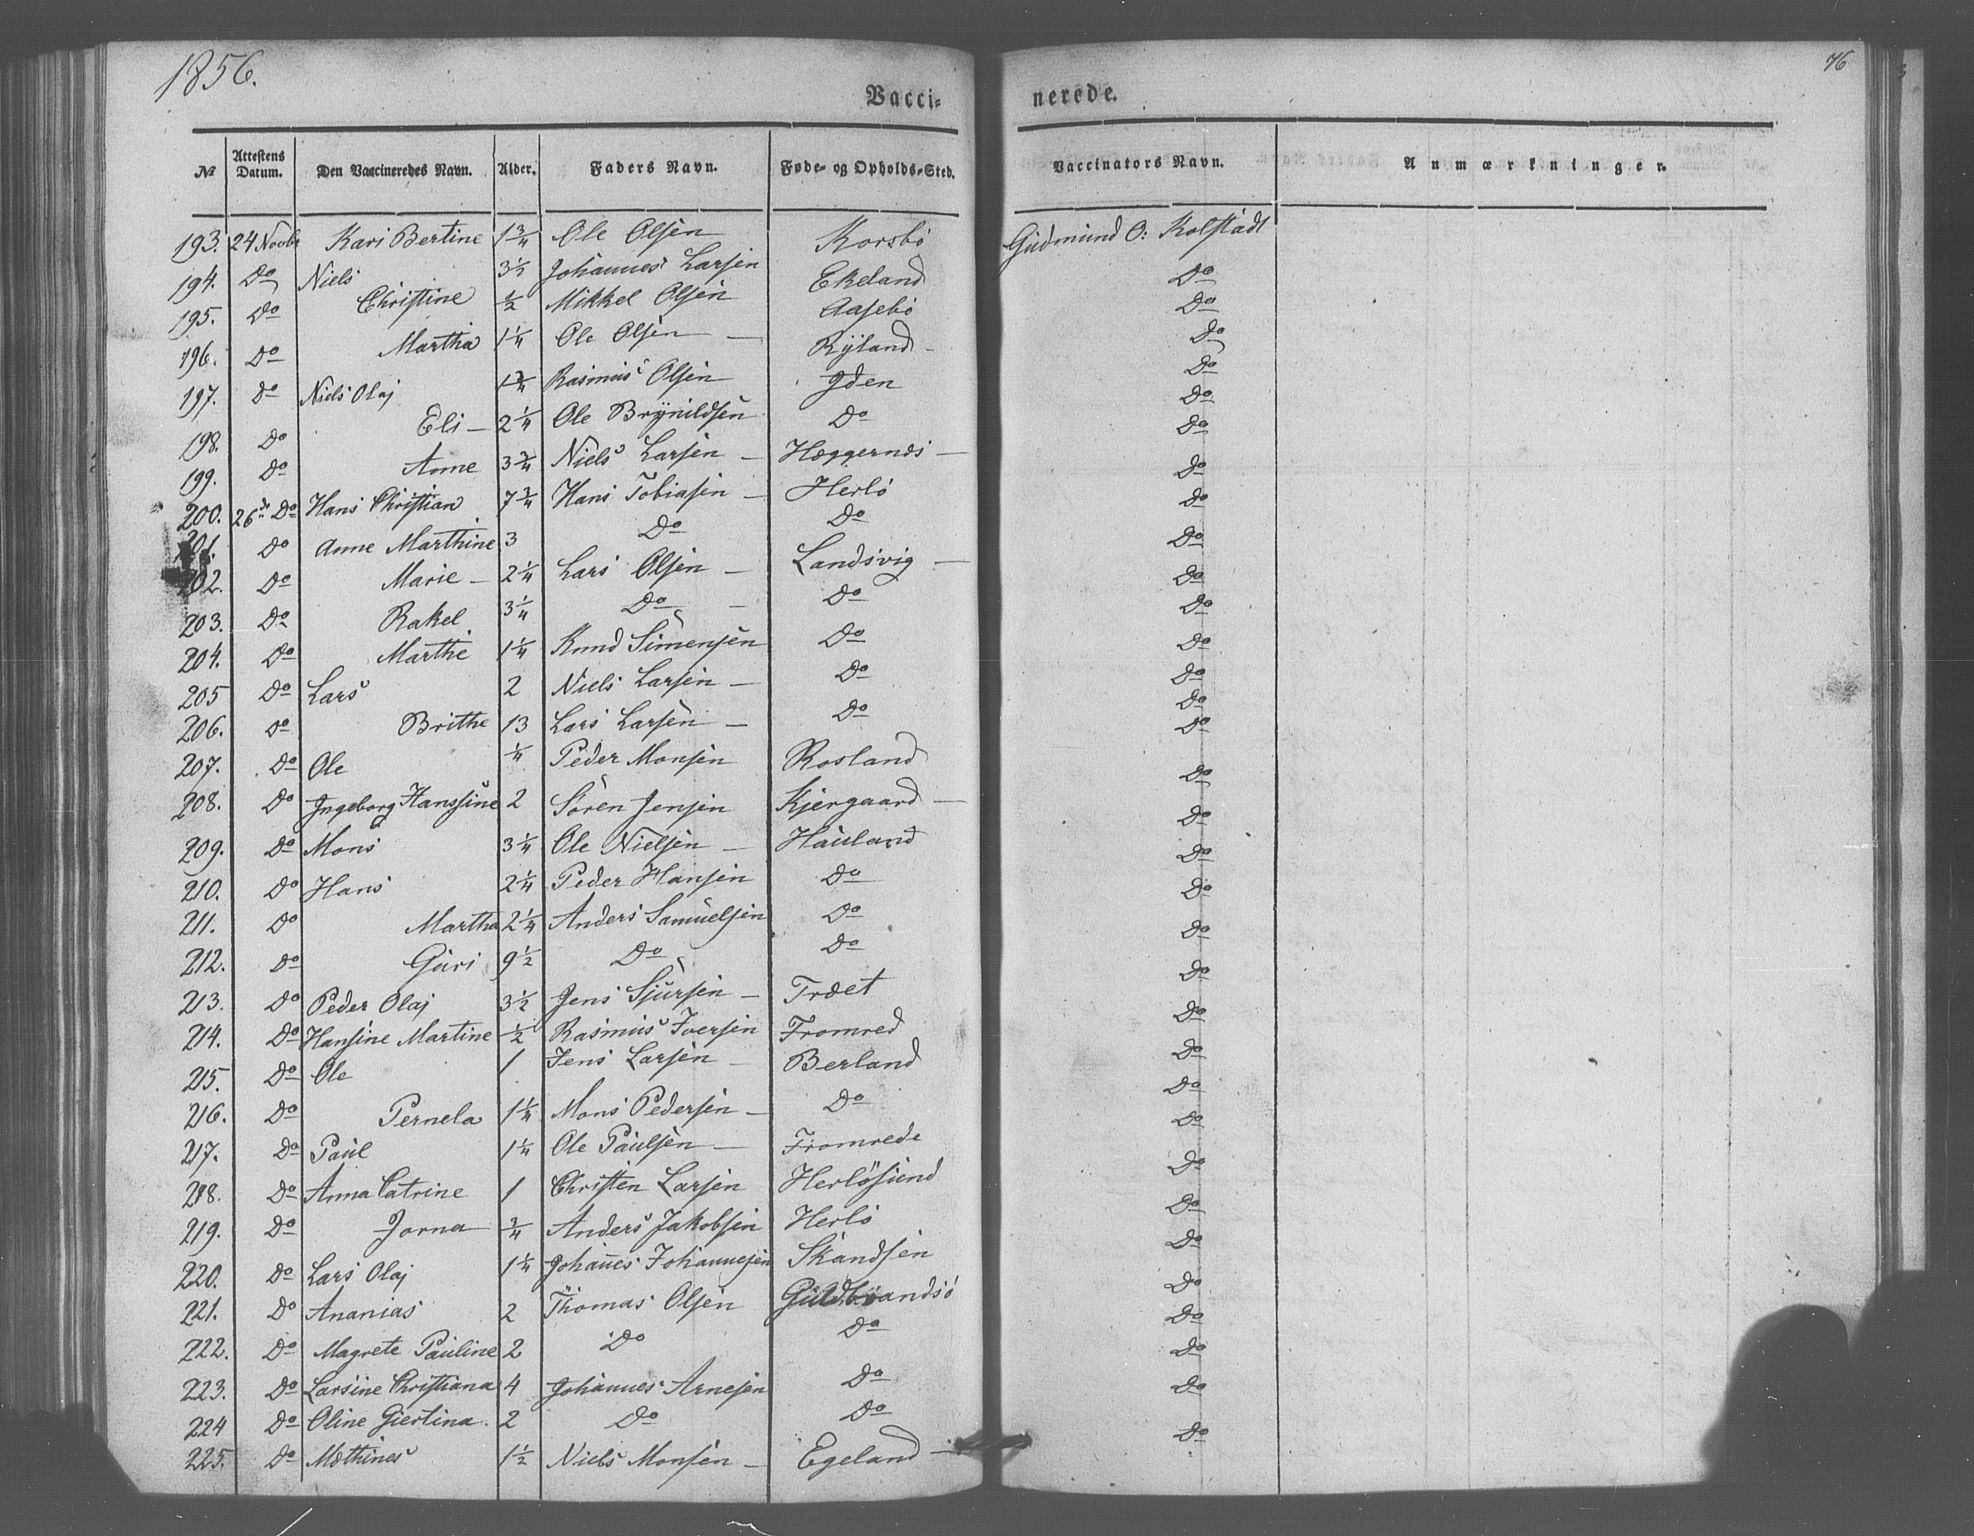 1856.
76
Vacci- nerede.
№ | Attestens Datum. | Den Vaccineredes Navn. | Alder. | Faders Navn. | Føde- og Opholds-Sted. | Vaccinators Navn. | Anmærkninger.
193. | 24 Novbr | Kari Bertine | 1 3/4 | Ole Olsen | Korsbö | Gudmund O: Kolstadt
194. | Do | Niels | 3 1/2 | Johannes Larsen | Ekeland | Do
195. | Do | Christine | 1/2 | Mikkel Olsen | Aasebö | Do
196. | Do | Martha | 1 1/4 | Ole Olsen — | Ryland — | Do
197. | Do | Niels Olaj | 1 3/4 | Rasmus Olsen | Iden | Do
198. | Do | Eli — | 2 1/4 | Ole Brynildsen | Do | Do
199. | Do | Anne | 3 3/4 | Niels Larsen — | Hæggernæs — | Do
200. | 26de Do | Hans Christian | 7 3/4 | Hans Tobiasen — | Herlö | Do
201. | Do | Anne Marthine | 3 | Do | Do | Do
202. | Do | Marie — | 2 1/4 | Lars Olsen — | Landsvig — | Do
203. | Do | Rakel | 3 1/4 | Do — | Do | Do
204. | Do | Marthe | 1 1/4 | Knud Simensen | Do | Do
205 | Do | Lars | 2 | Niels Larsen — | Do | Do
206. | Do | Brithe | 13 | Lars Larsen — | Do | Do
207. | Do | Ole | 1/4 | Peder Monsen | Rosland | Do
208. | Do | Ingeborg Hanssine | 2 | Sören Jensen | Kjergaard — | Do
209. | Do | Mons | 3 1/4 | Ole Nielsen — | Hauland | Do
210. | Do | Hans | 2 1/4 | Peder Hansen | Do | Do
211. | Do | Martha | 2 1/4 | Anders Samuelsen | Do | Do
212. | Do | Guri | 9 1/2 | Do | Do | Do
213. | Do | Peder Olaj | 3 1/2 | Jens Sjursen — | Træet | Do
214. | Do | Hansine Martine | 1/2 | Rasmus Iversen | Fromred | Do
215. | Do | Ole | 1 | Jens Larsen — | Berland | Do
216. | Do | Pernela | 1 1/4 | Mons Pedersen — | Do | Do
217. | Do | Paul | 1 1/4 | Ole Paulsen — | Fromrede | Do
218. | Do | Anna Catrine | 1 | Christen Larsen | Herlösund | Do
219. | Do | Jorna | 3/4 | Anders Jakobsen | Herlö | Do
220. | Do | Lars Olaj | 1 1/4 | Johañes Johannesen | Skandsen | Do
221. | Do | Ananias | 2 | Thomas Olsen | Guldbrandsö | Do
222. | Do | Magrete Pauline | 2 | Do | Do | Do
223. | Do | Larsine Christiana | 4 | Johannes Arnesen | Do | Do
224 | Do | Oline Giertina | 2 | Do | Do | Do
225. | Do | Mathines | 1 1/2 | Niels Monsen — | Egeland — | Do